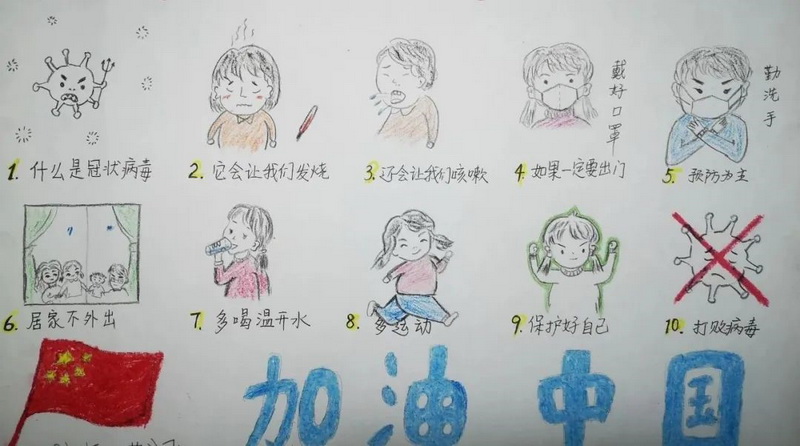 戴好口罩
勤洗手
1. 什么是冠状病毒
2. 它会让我们发烧
3. 还会让我们咳嗽
4. 如果一定要出门
5. 预防为主
6. 居家不外出
7. 多喝温开水
8. 多运动
9. 保护好自己
10. 打败病毒
加油中国